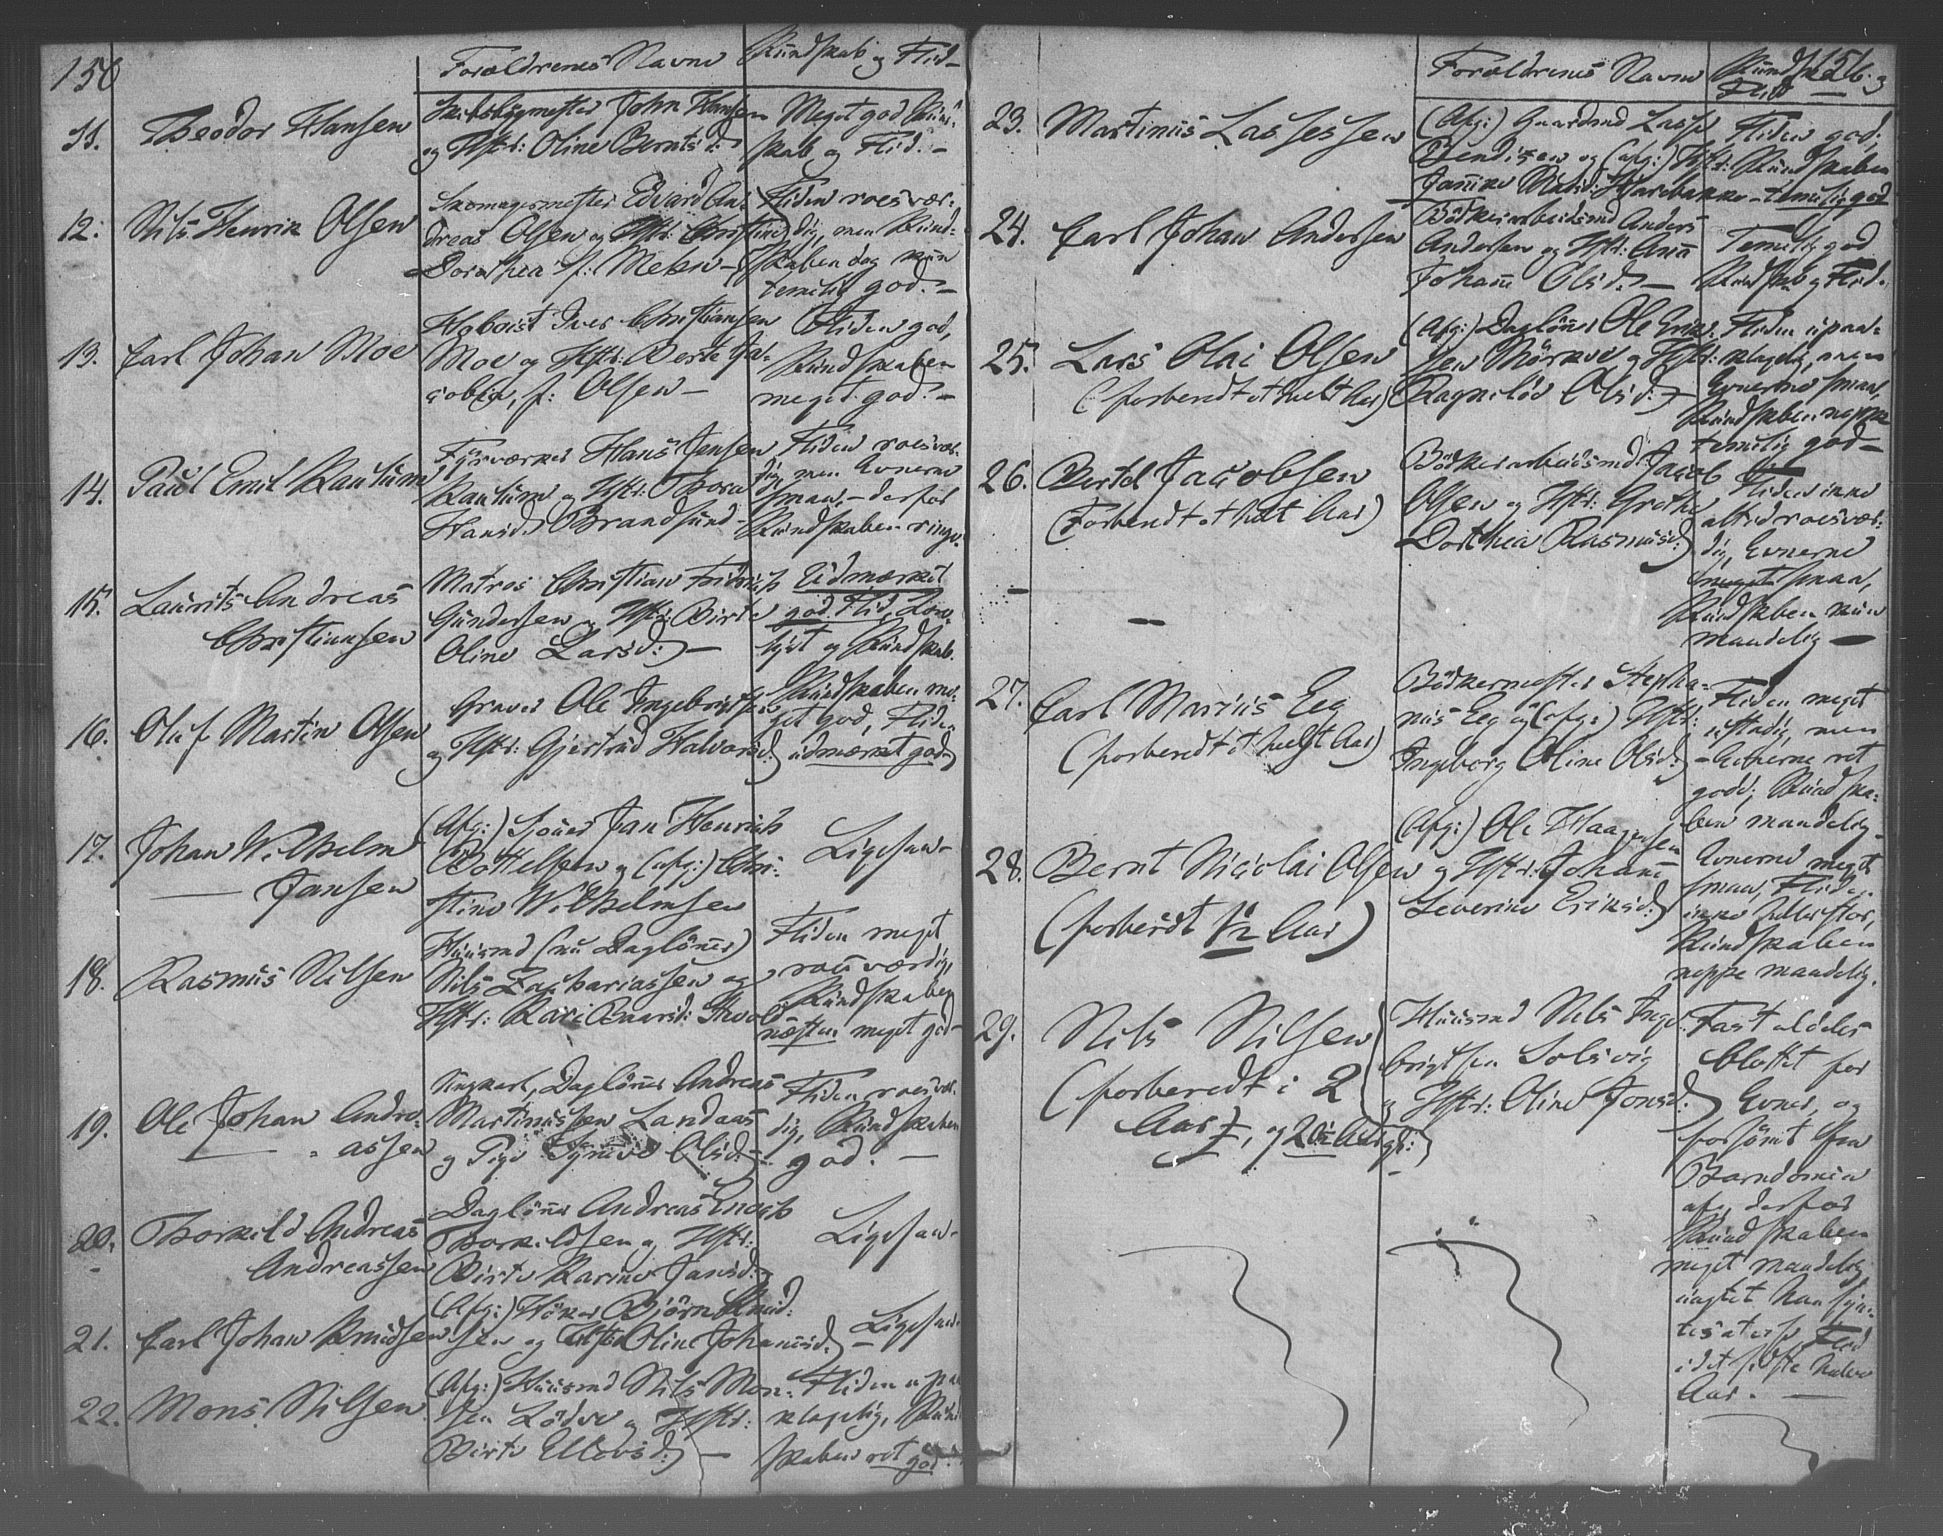 156
Forældrenes Navne
Kundskab og Flid
11.
Theodor Hansen
Skibsbygmester John Hansen
og Hstr: Oline Berntsd:
Meget god Kund-
skab og Flid. -
12.
Nils Henrik Olsen
Skomagermester Edvard An-
dreas Olsen og Hstr: Christine
Dorothea f:
Fliden roesvær-
dig, men Kund-
skaben dog kun
temelig god. -
13.
Carl Johan Moe
Hoboist Iver Christiansen
Moe og Hstr: Berte Ja-
cobine, f: Olsen -
Fliden god,
Kundskaben
meget god. -
14.
Paul Emil Rantum
Fyrværker Hans Jensen
Rantum og Hstr: Thora
Hansd: Brandsund -
Fliden roesvær-
dig, men Evnerne
smaa, - derfor
Kundskaben ringe.
15.
Laurits Andreas
Christiansen
Matros Christian Fredrich
Gundersen og Hstr: Birte
Oline Larsd: -
Udmærket
god Flid,
og Kundskab.
16.
Oluf Martin Olsen
Graver Ole Ingebrigtsen
og Hstr: Gjertrud Halvorsd:
Kundskaben me-
get god, Fliden
udmærket god
17.
Johan Wilhelm
Jansen
(Afg:) Jan Henrich
og (afg:) Chri-
stine Wilhelmsen
Ligesaa -
18.
Rasmus Nilsen
Huusmd (nu Daglönner)
Nils Zachariassen og
Hstr: Kari Baarsd:
Fliden meget
roesværdig,
Kundskaben
næsten meget god -
19.
Ole Johan Andre-
assen
Ungkarl, Daglönner Andreas
Martinussen Landaas
og Pige Synneve Olsd: -
Fliden roesvær-
dig, Kundskaben
god. -
20.
Thorkild Andreas
Andreassen
Daglönner Andreas Enoch
Thorkildsen og Hstr:
Birte Karine Jansd:
Ligesaa -
21.
Carl Johan Knudsen
(Afg:) Höker Björn Knud-
sen og Hstr: Oline Johannesd: -
Ligesaa -
22.
Mons Nilsen
(Afg:) Huusmd Nils Mon-
sen og Hstr:
Birte Ellevsd: -
Fliden upaa-
klagelig, Kund-
skaben ret god.
Forældrenes Navne
Kundskab og
Flid
156.
23.
Martinus Lassessen
(Afg:) Gaardmd Lasse
Bendixen og (afg:) Hstr:
Jannike Matsd: Harebakke -
Fliden god,
Kundskaben
temelig god
24.
Carl Johan Andersen
Bödkerarbeidsmd Anders
Andersen og Hstr: Anna
Johanne Olsd: -
Temelig god
Kundskab og Flid.
25.
Lars Olai Olsen
(forberedt et heelt Aar)
(Afg:) Daglönner Ole Erik-
sen Mörkve og Hstr:
Ragnilde Olsd: -
Fliden upaa-
klagelig, men
Evnerne smaa,
Kundskaben neppe
temelig god -
26.
Bertel Jacobsen
(Forberedt et helt Aar)
Bödkerarbeidsmd: Jacob
Olsen og Hstr: Grethe
Dorthea Rasmusd:
Fliden ikke
altid roesvær-
dig, Evnerne
meget smaa,
Kundskaben kun
maadelig -
27.
Carl Marius Eeg
(forberedt et helt Aar)
Bödkermester Stepha-
nus Eeg og (afg:) Hstr:
Ingeborg Oline Olsd:
Fliden meget
ustadig, men
Evnerne ret
gode; Kundska-
ben maadelig -
28.
Bernt Nicolai Olsen
(forberedt 1½ Aar)
(Afg:) Ole Haagensen
og Hstr: Johanne
Severine Eriksd:
Evnerne meget
smaa, Fliden
ikke heller stor,
Kundskaben
neppe maadelig.
29.
Nils Nilsen
(forberedt i 2
Aar
Huusmd Nils Inge-
brigtsen Solsvig
og Hstr: Oline Jonsd:
Fast aldeles
blottet for
Evner, og
forsömt fra
Barndommen
af, derfor
Kundskaben
meget maadelig
uagtet Flid
i det sidste halve
Aar. -